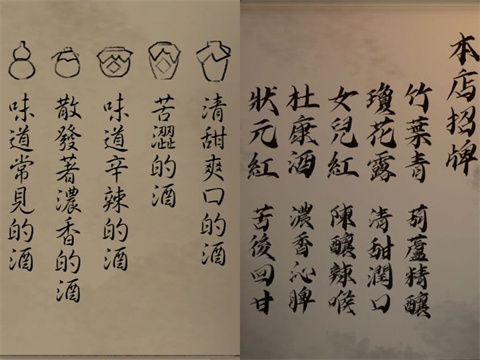 清甜爽口的酒
苦澀的酒
味道辛辣的酒
散發著濃香的酒
味道常見的酒
本店招牌
竹葉青 葫蘆精釀
瓊花露 清甜潤口
女兒紅 陳釀辣喉
杜康酒 濃香沁脾
狀元紅 苦後回甘